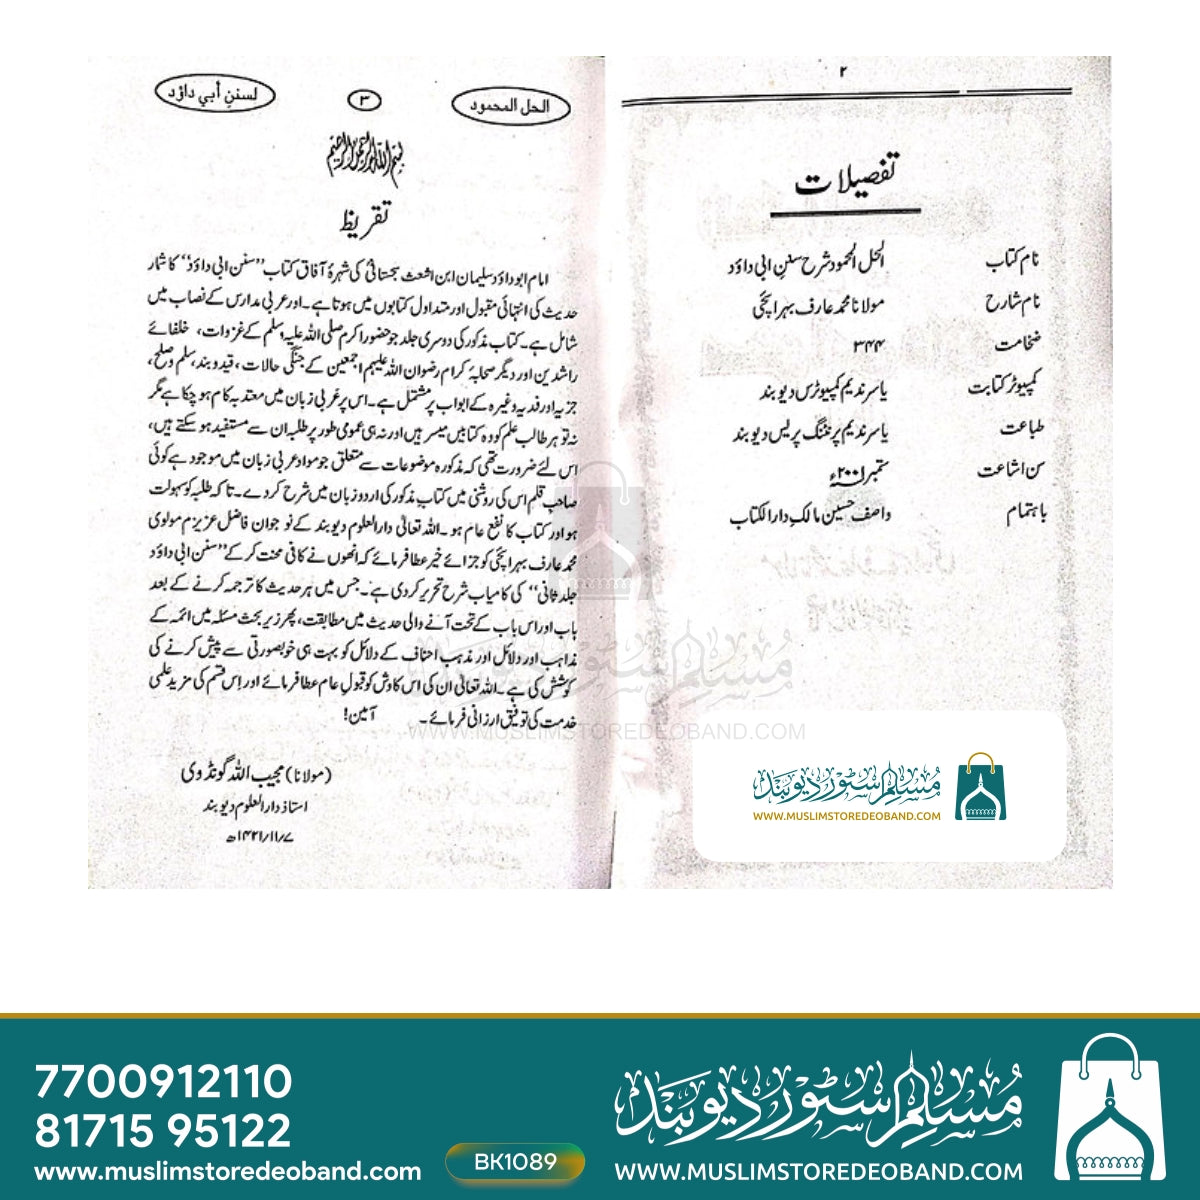 ۲
تفصیلات
نام کتاب الحل المحمود شرح سنن ابی داؤد
نام شارح مولانا محمد عارف بہرائچی
ضخامت ۳۴۴
کمپیوٹر کتابت یاسر ندیم کمپیوٹرس دیوبند
طباعت یاسر ندیم پرنٹنگ پریس دیوبند
سن اشاعت ستمبر ۲۰۰۱ء
باہتمام واصف حسین مالک دارالکتاب
الحل المحمود
۳
لسنن أبي داؤد
بسم اللہ الرحمن الرحیم
تقریظ
امام ابو داؤد سلیمان ابن اشعث سجستانیؒ کی شہرۂ آفاق کتاب ”سنن ابی داؤد“ کا شمار
حدیث کی انتہائی مقبول اور متداول کتابوں میں ہوتا ہے۔ اور عربی مدارس کے نصاب میں
شامل ہے۔ کتاب مذکور کی دوسری جلد جو حضور اکرم صلی اللہ علیہ وسلم کے غزوات، خلفائے
راشدین اور دیگر صحابۂ کرام رضوان اللہ علیہم اجمعین کے جنگی حالات، قید و بند، سلم و صلح،
جزیہ اور فدیہ وغیرہ کے ابواب پر مشتمل ہے۔ اس پر عربی زبان میں معتد بہ کام ہو چکا ہے مگر
نہ تو ہر طالب علم کو وہ کتابیں میسر ہیں اور نہ ہی عمومی طور پر طلبہ ان سے مستفید ہو سکتے ہیں،
اس لئے ضرورت تھی کہ مذکورہ موضوعات سے متعلق جو مواد عربی زبان میں موجود ہے کوئی
صاحب قلم اس کی روشنی میں کتاب مذکور کی اردو زبان میں شرح کر دے۔ تا کہ طلبہ کو سہولت
ہو اور کتاب کا نفع عام ہو۔ اللہ تعالیٰ دارالعلوم دیوبند کے نوجوان فاضل عزیزم مولوی
محمد عارف بہرائچی کو جزائے خیر عطا فرمائے کہ انھوں نے کافی محنت کر کے ”سنن ابی داؤد
جلد ثانی“ کی کامیاب شرح تحریر کر دی ہے۔ جس میں ہر حدیث کا ترجمہ کرنے کے بعد
باب اور اس باب کے تحت آنے والی حدیث میں مطابقت، پھر زیر بحث مسئلہ میں ائمہ کے
مذاہب اور دلائل اور مذہب احناف کے دلائل کو بہت ہی خوبصورتی سے پیش کرنے کی
کوشش کی ہے۔ اللہ تعالیٰ ان کی اس کاوش کو قبول عام عطا فرمائے اور اس قسم کی مزید علمی
خدمت کی توفیق ارزانی فرمائے۔ آمین!
(مولانا) مجیب اللہ گونڈوی
استاذ دارالعلوم دیوبند
۱۴۲۱/۱۱/۷ھ
مسلم سٹور دیوبند
WWW.MUSLIMSTOREDEOBAND.COM
مسلم سٹور دیوبند
WWW.MUSLIMSTOREDEOBAND.COM
7700912110
81715 95122
www.muslimstoredeoband.com
BK1089
مسلم سٹور دیوبند
WWW.MUSLIMSTOREDEOBAND.COM